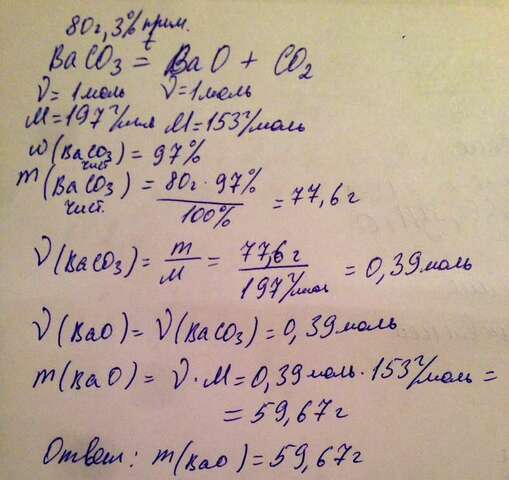 80г, 3% прим.
t
BaCO3 = BaO + CO2
ν = 1 моль ν = 1 моль
M = 197 г/моль M = 153 г/моль
ω (BaCO3) = 97%
чист
m (BaCO3) = 80г · 97% / 100% = 77,6 г
чист.
ν (BaCO3) = m / M = 77,6 г / 197 г/моль = 0,39 моль
ν (BaO) = ν (BaCO3) = 0,39 моль.
m (BaO) = ν · M = 0,39 моль · 153 г/моль =
= 59,67 г
Ответ: m (BaO) = 59,67 г